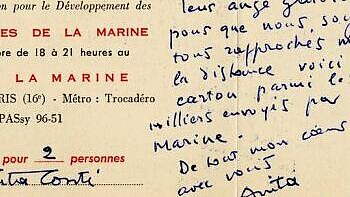 on pour le Développement des
ES DE LA MARINE
bre de 18 à 21 heures au
LA MARINE
RIS (16e) - Métro : Trocadéro
PASsy 96-51
pour 2 personnes
ita Conti
leurs ange
pour que nous, soy
tous rapprochés m
la distance voici
carton parmi le
milliers envoyés par
Marine.
De tout mon cœur
avec vous
Anita